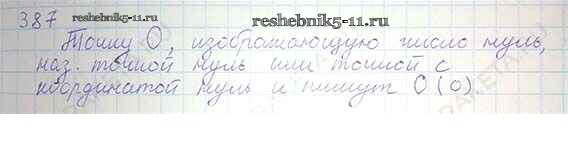 387 reshebnik5-11.ru reshebnik5-11.ru
Точку О, изображающую число нуль,
наз. точкой нуль или точкой с
координатой нуль и пишут О (0).